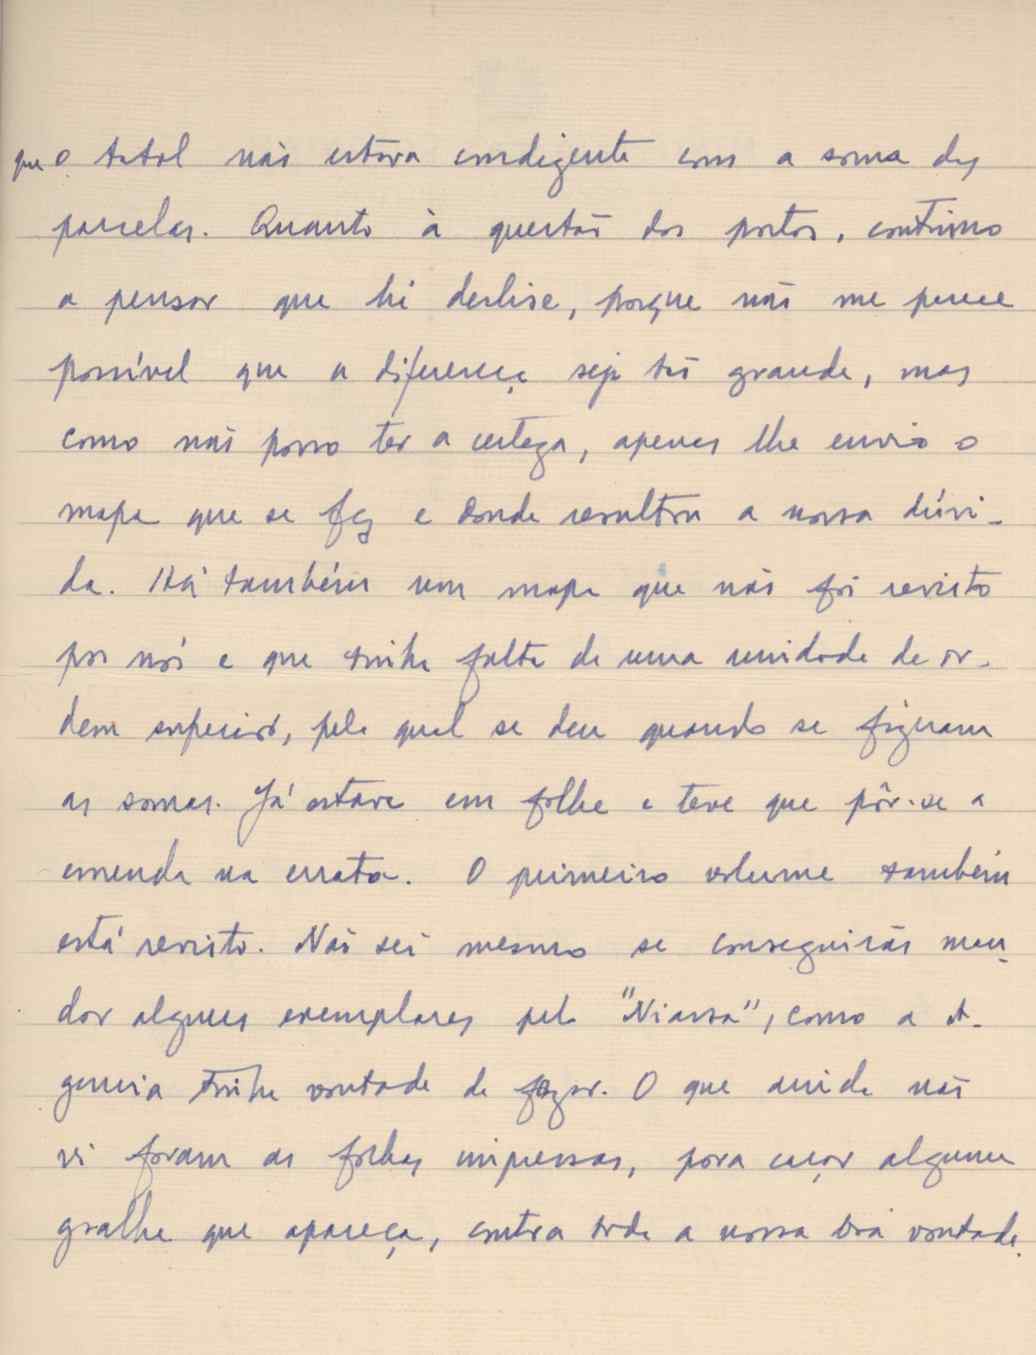 que o total não estava condizente com a soma das
parcelas. Quanto à questão dos portos, continuo
a pensar que há deslise, porque não me parece
possível que a diferença seja tão grande, mas
como não posso ter a certeza, apenas lhe envio o
mapa que se fez e donde resultou a nossa dúvi-
da. Há também um mapa que não foi revisto
por nós e que tinha falta de uma unidade de or-
dem superior, pela qual se deu quando se fizeram
as somas. Já estava em folha e teve que pôr-se a
emenda na errata. O primeiro volume também
está revisto. Não sei mesmo se conseguirás man-
dar alguns exemplares pelo "Niassa", como a A-
gencia tinha vontade de fazer. O que ainda não
vi foram as folhas impressas, para caçar alguma
gralha que apareça, contra toda a nossa boa vontade.